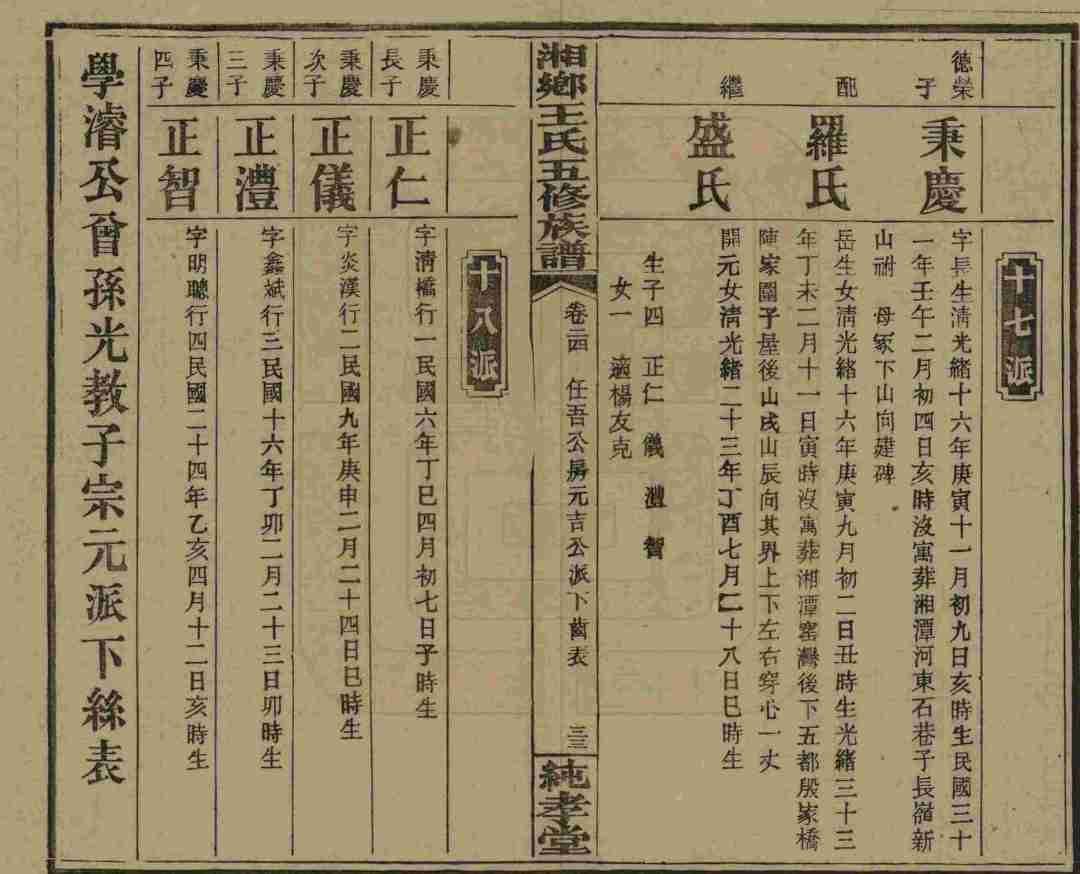 十七派
德榮
子
秉慶
字長生清光緒十六年庚寅十一月初九日亥時生民國三十
一年壬午二月初四日亥時沒寓葬湘潭河東石巷子長嶺新
山祔 母冢下山向建碑
配
羅氏
岳生女清光緒十六年庚寅九月初二日丑時生光緒三十三
年丁未二月十一日寅時沒寓葬湘潭窑灣後下五都殷家橋
陣家園子屋後山戌山辰向其界上下左右穿心一丈
繼
盛氏
開元女清光緒二十三年丁酉七月二十八日巳時生
生子四 正仁 儀 澧 智
女一 適楊友克
湘鄉王氏五修族譜
卷二四 任吾公房元吉公派下齒表 三三
純孝堂
十八派
秉慶
長子
正仁
字清橋行一民國六年丁巳四月初七日子時生
秉慶
次子
正儀
字炎漢行二民國九年庚申二月二十四日巳時生
秉慶
三子
正澧
字鑫斌行三民國十六年丁卯二月二十三日卯時生
秉慶
四子
正智
字明聰行四民國二十四年乙亥四月十二日亥時生
學濬公曾孫光教子宗元派下絲表